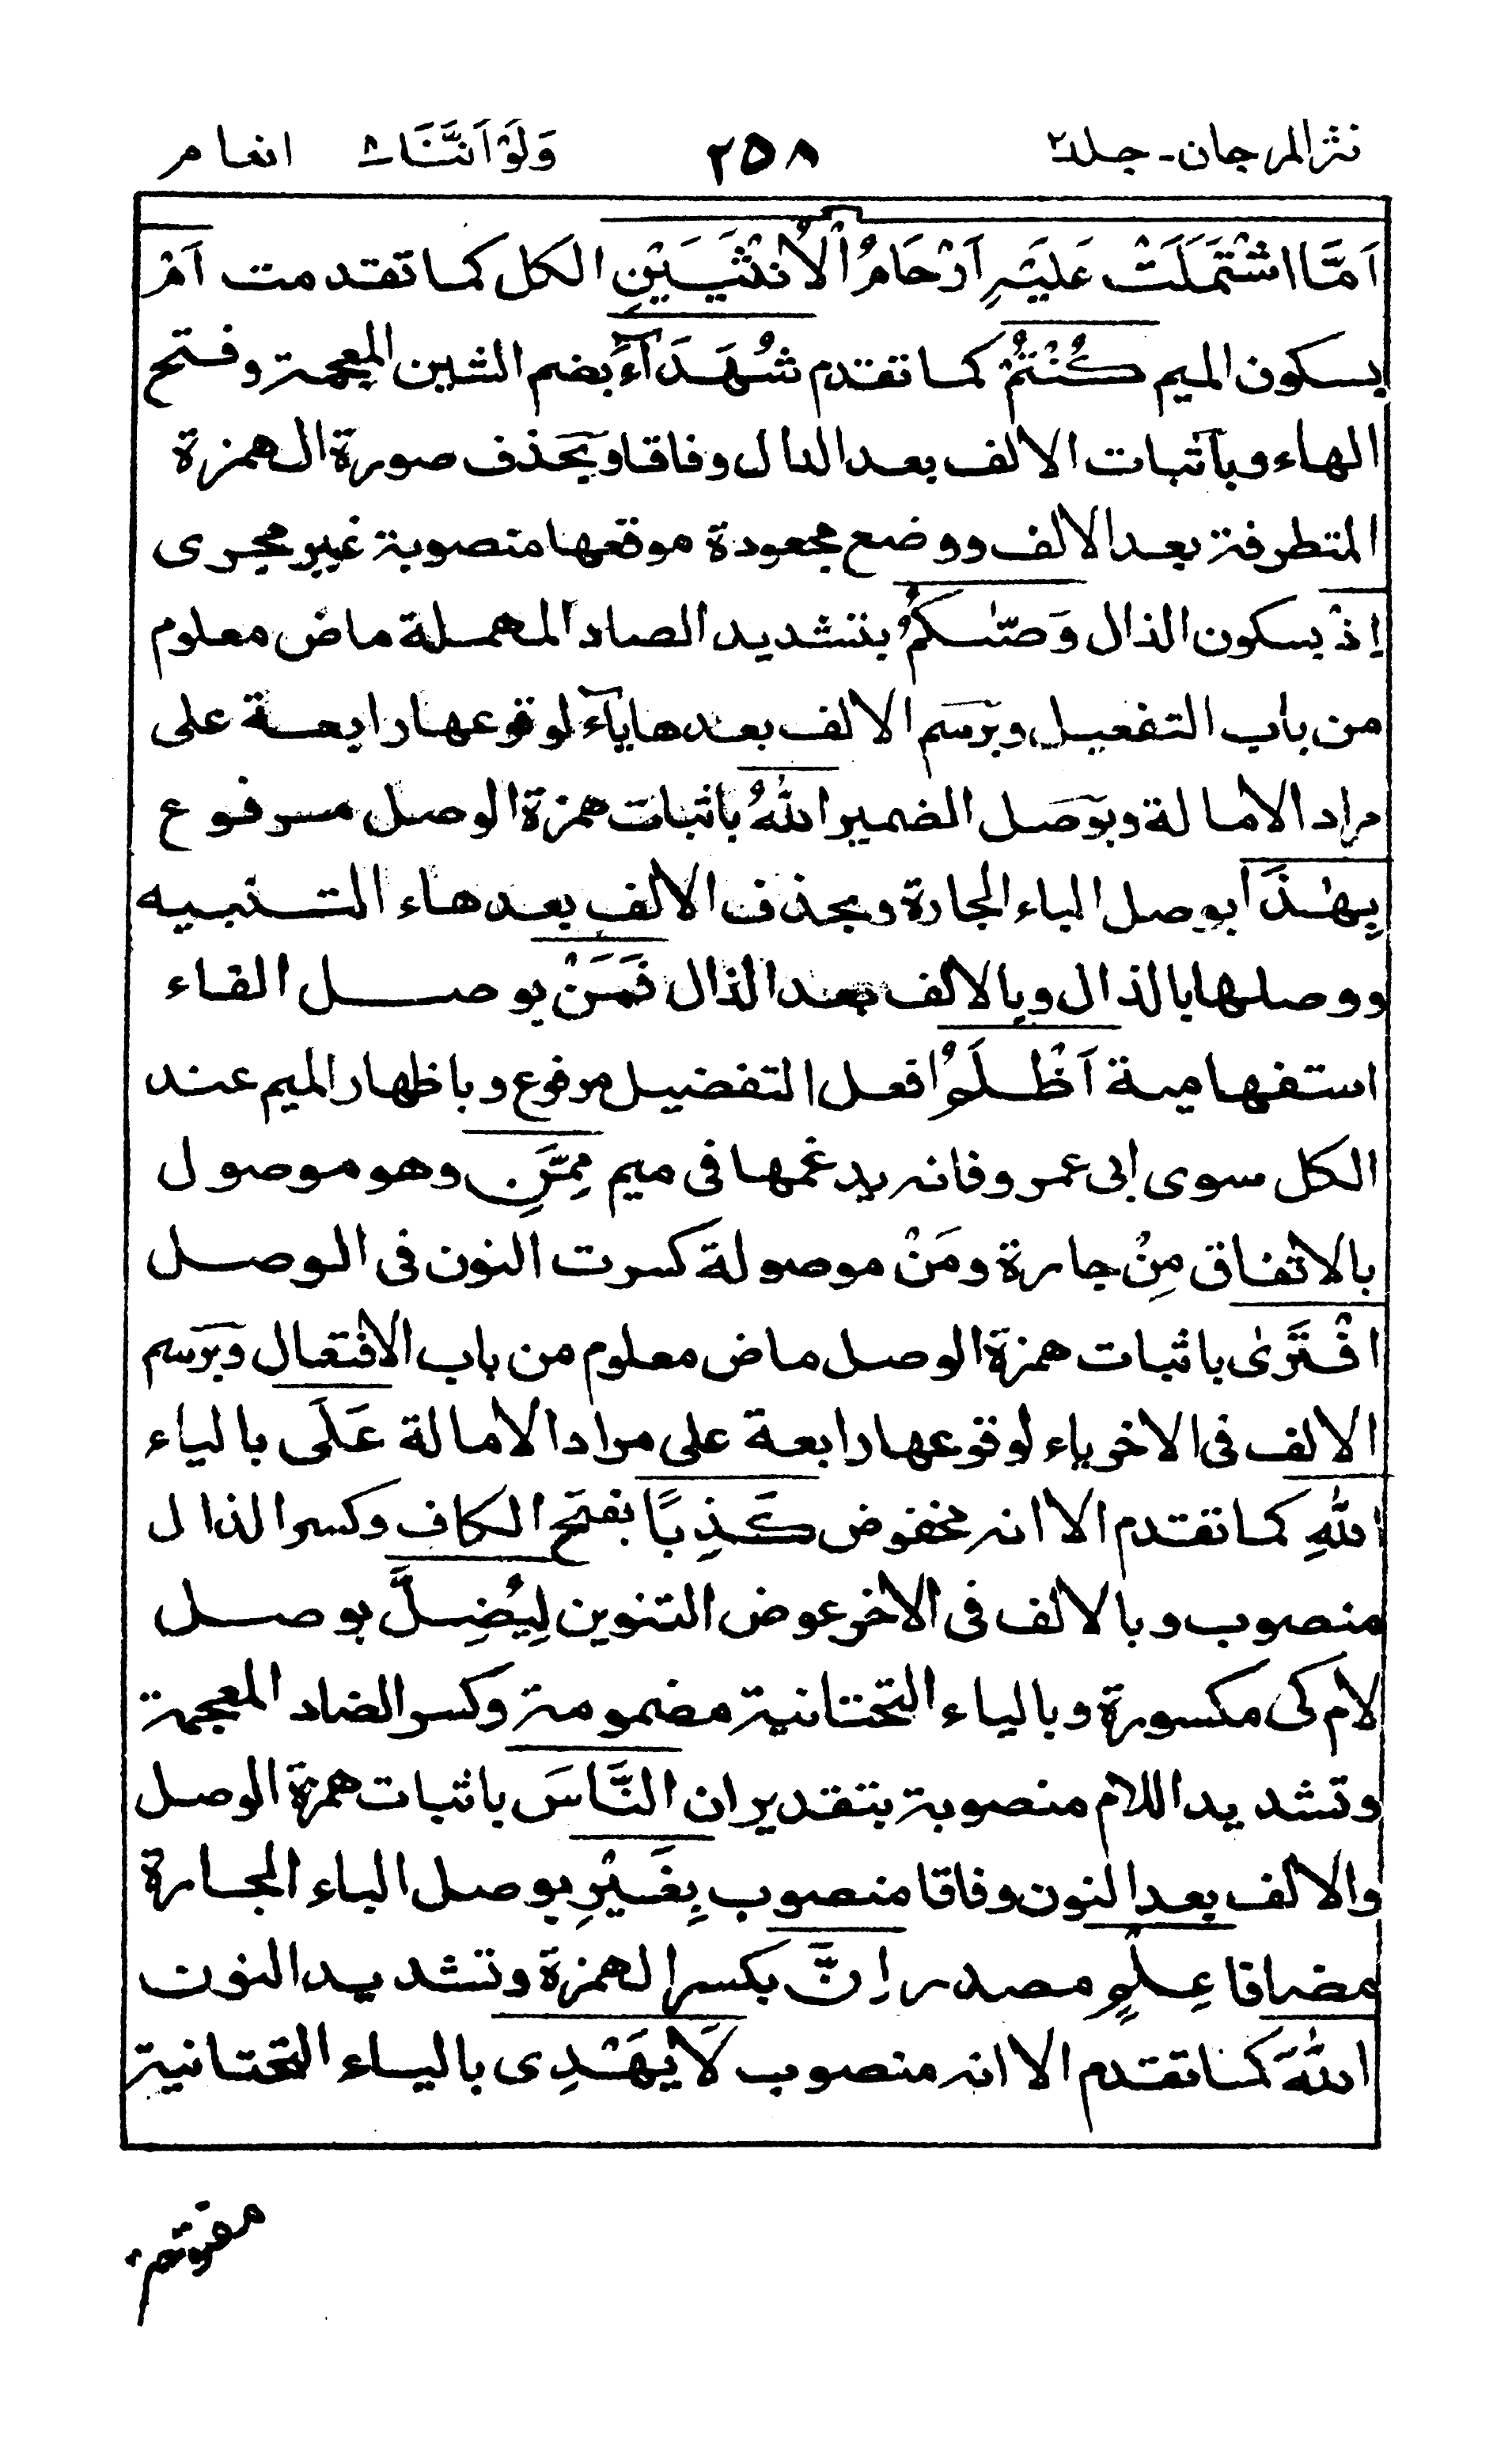 نثر المرجان - جلد٢ ٢٥٨ وَلَوْ اَنَّنَا ٨ انعام
اَمَّا اشْتَمَلَتْ عَلَيْهِ اَرْحَامُ الْاُنْثَيَيْنِ الكل كما تقدمت اَمْ
بسكون الميم كُنْتُمْ كما تقدم شُهَدَآءَ بضم الشين المعجمة وفتح
الهاء وبآثبات الالف بعد الدال وفاقا وبحذف صورة الهمزة
المتطرفة بعد الالف ووضع مجعودة موقعها منصوبة غير مجرى
اِذْ بسكون الذال وَصّٰىكُمُ بتشديد الصاد المهملة ماض معلوم
من باب التفعيل وبرَسم الالف بعدها يآء لوقوعها رابعة على
مراد الامالة وبوَصل الضمير اللّٰهُ باثبات همزة الوصل مرفوع
بِهٰذَا بوصل الباء الجارة وبحذف الالف بعد هاء التنبيه
ووصلها بالذال وبالالف بعد الذال فَمَنْ بوصل الفاء
استفهامية اَظْلَمُ افعل التفضيل مرفوع وباظهار الميم عند
الكل سوى ابى عمرو فانه يدغمها فى ميم مِمَّنِ وهو موصول
بالاتفاق مِنْ جارة ومَنْ موصولة كسرت النون فى الوصل
افْتَرٰى باثبات همزة الوصل ماض معلوم من باب الافتعال وبرَسم
الالف فى الاخر ياء لوقوعها رابعة على مراد الامالة عَلَى بالياء
اللّٰهِ كما تقدم الا انه مخفوض كَذِبًا بفتح الكاف وكسر الذال
منصوب وبالالف فى الاخر عوض التنوين لِيُضِلَّ بوصل
لام كى مكسورة وبالياء التحتانية مضمومة وكسر الضاد المعجمة
وتشديد اللام منصوبة بتقدير ان النَّاسَ باثبات همزة الوصل
والالف بعد النون وفاقا منصوب بِغَيْرِ بوصل الباء الجارة
مضافا عِلْمٍ مصدر اِنَّ بكسر الهمزة وتشديد النون
اللّٰهَ كما تقدم الا انه منصوب لَا يَهْدِى بالياء التحتانية